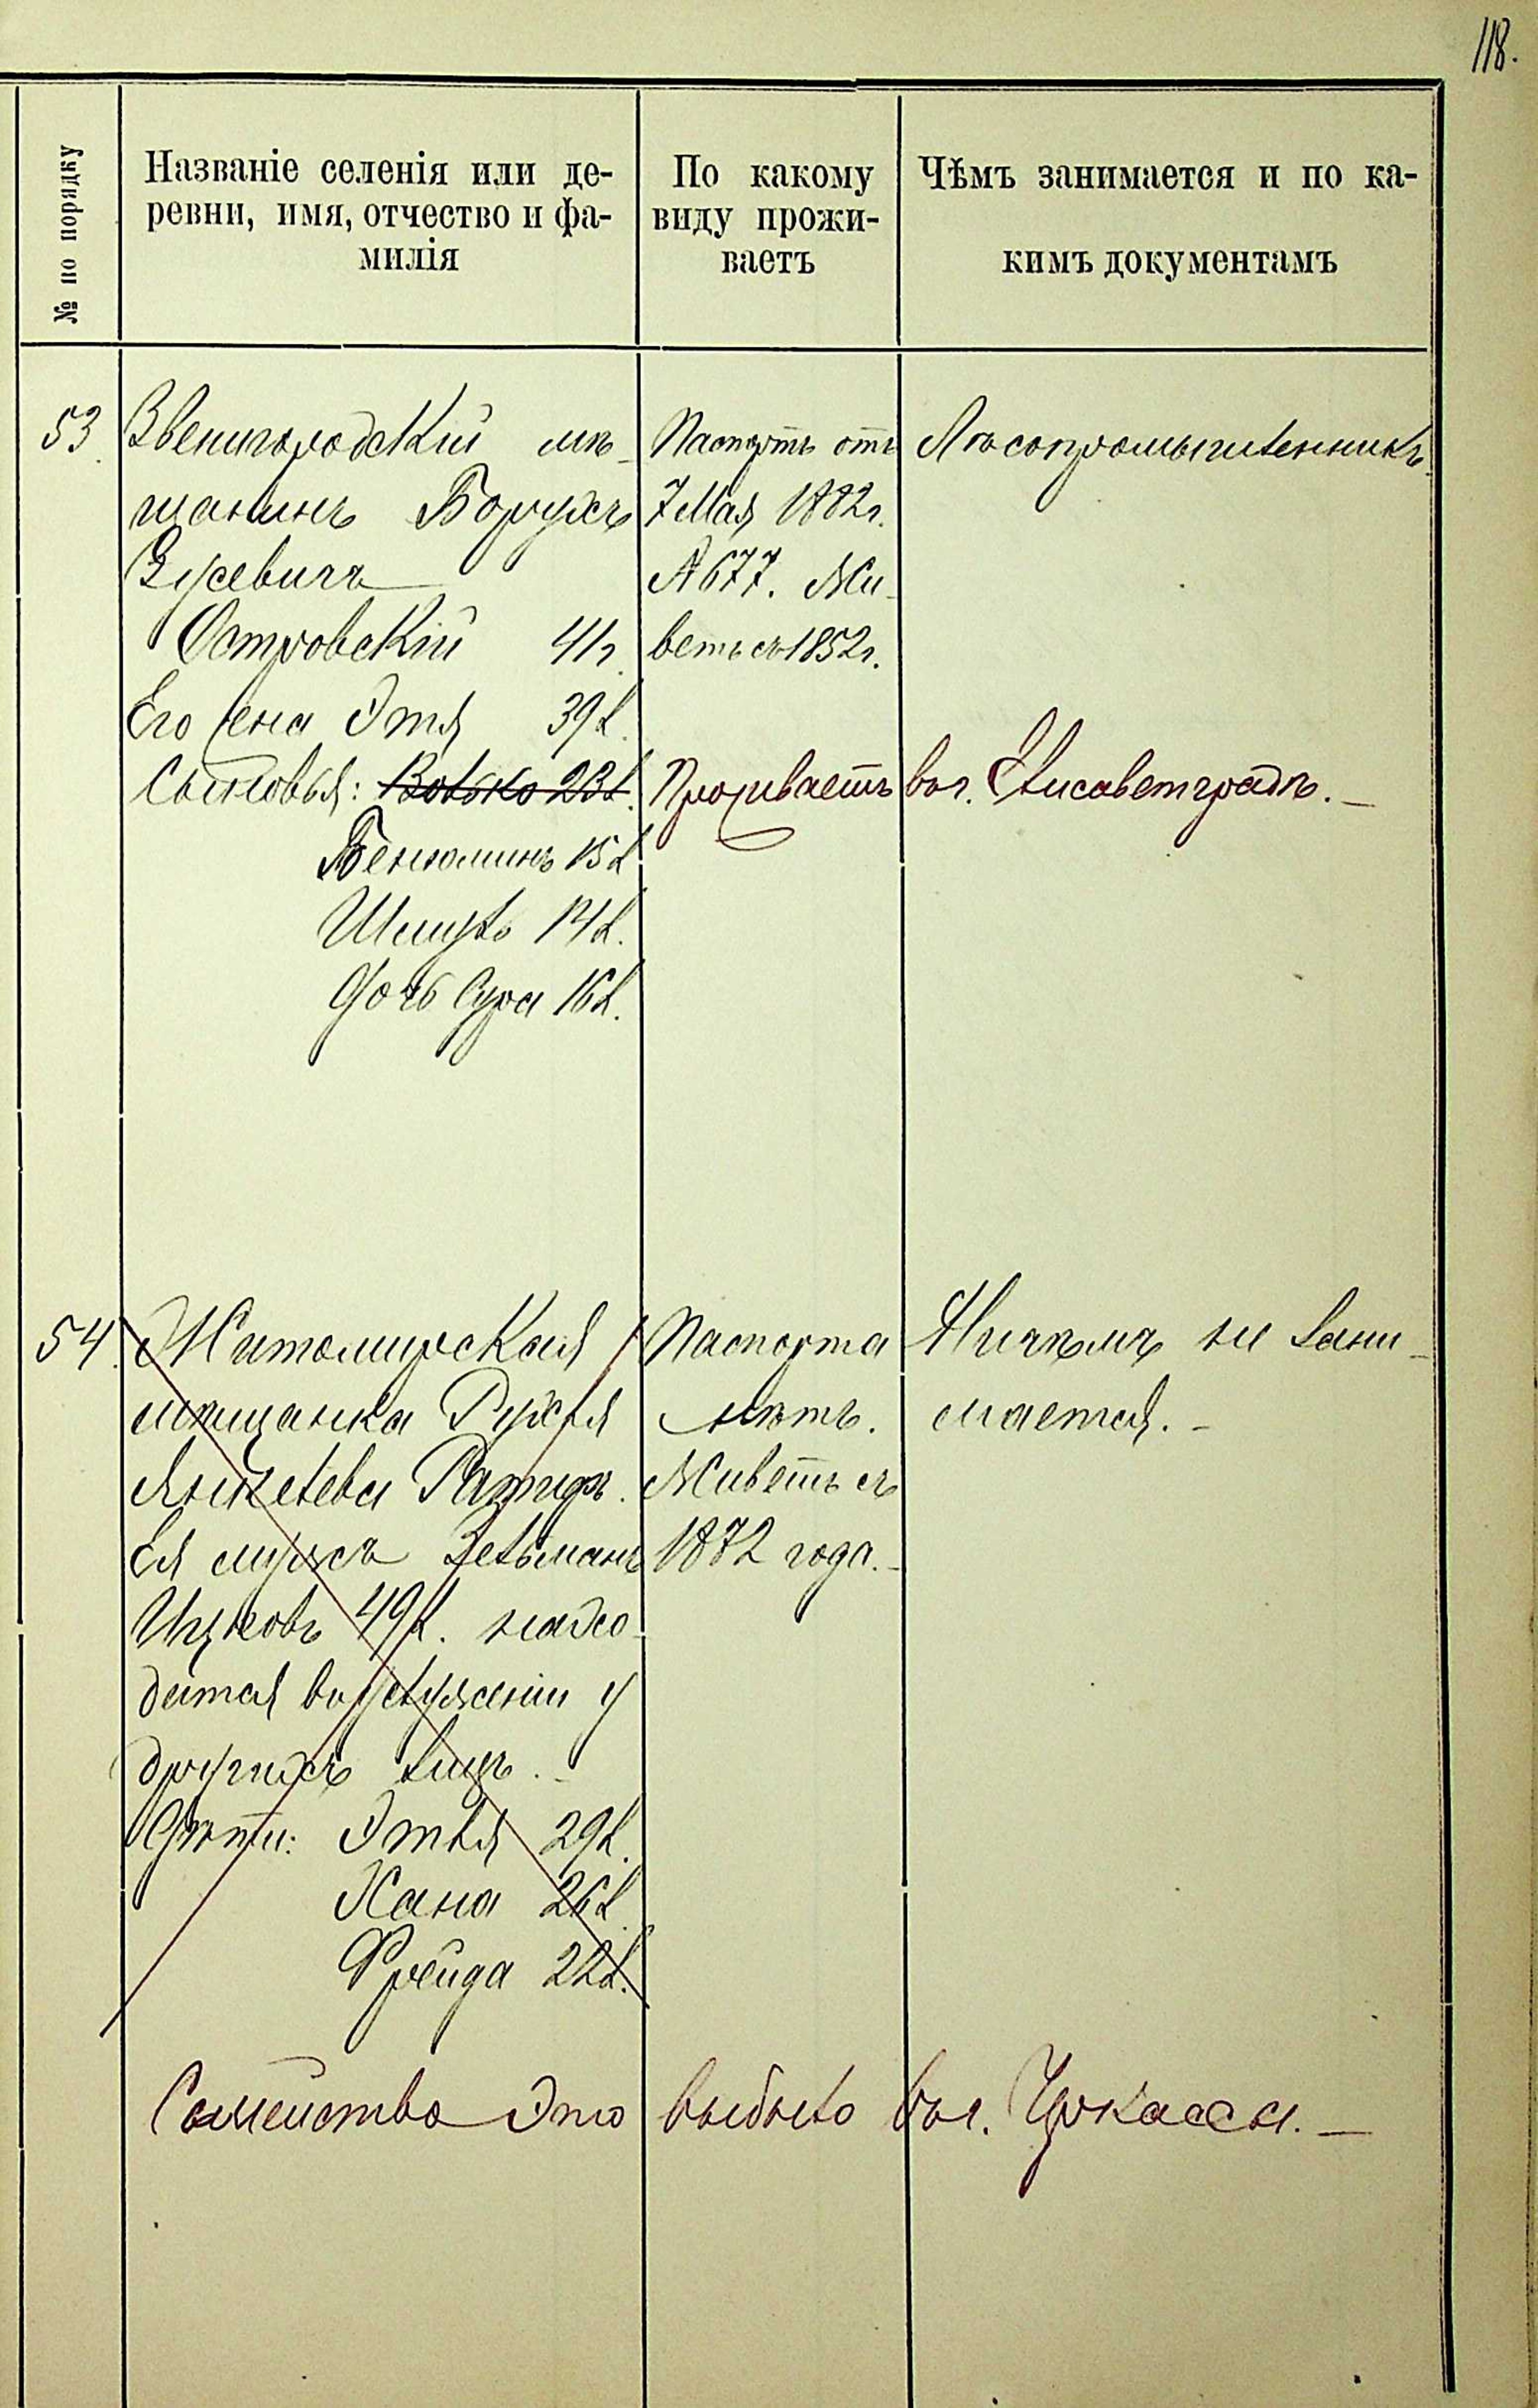 118.
№ по порядку
Названіе селенія или де-
ревни, имя, отчество и фа-
милія
По какому
виду прожи-
ваетъ
Чѣмъ занимается и по ка-
кимъ документамъ
53.
Звенигородскій мѣ-
щанинъ Борухъ
Зусевичъ
Островскій 41 г.
Его жена Этя 39 л.
Сыновья: Волько 23 л.
Бенюминъ 15 л.
Шмуль 14 л.
Дочь Сура 16 л.
Паспортъ отъ
7 Мая 1882 г.
№ 677. Жи-
ветъ съ 1852 г.
Проживаетъ въ г. Елисаветградѣ. —
Лѣсопромышленникъ.
54.
Житомирская
мѣщанка Рухля
Янкелева
Ея мужъ Зельманъ
Ицковъ 49 л. нахо-
дится въ услуженіи у
другихъ лицъ. -
Дѣти: Этля 29 л.
Хана 26 л.
Фрейда 22 л.
Паспорта
нѣтъ.
Живетъ съ
1872 года. -
Ничѣмъ не зани-
мается. -
Семейство это выбыло въ г. Черкассы. —